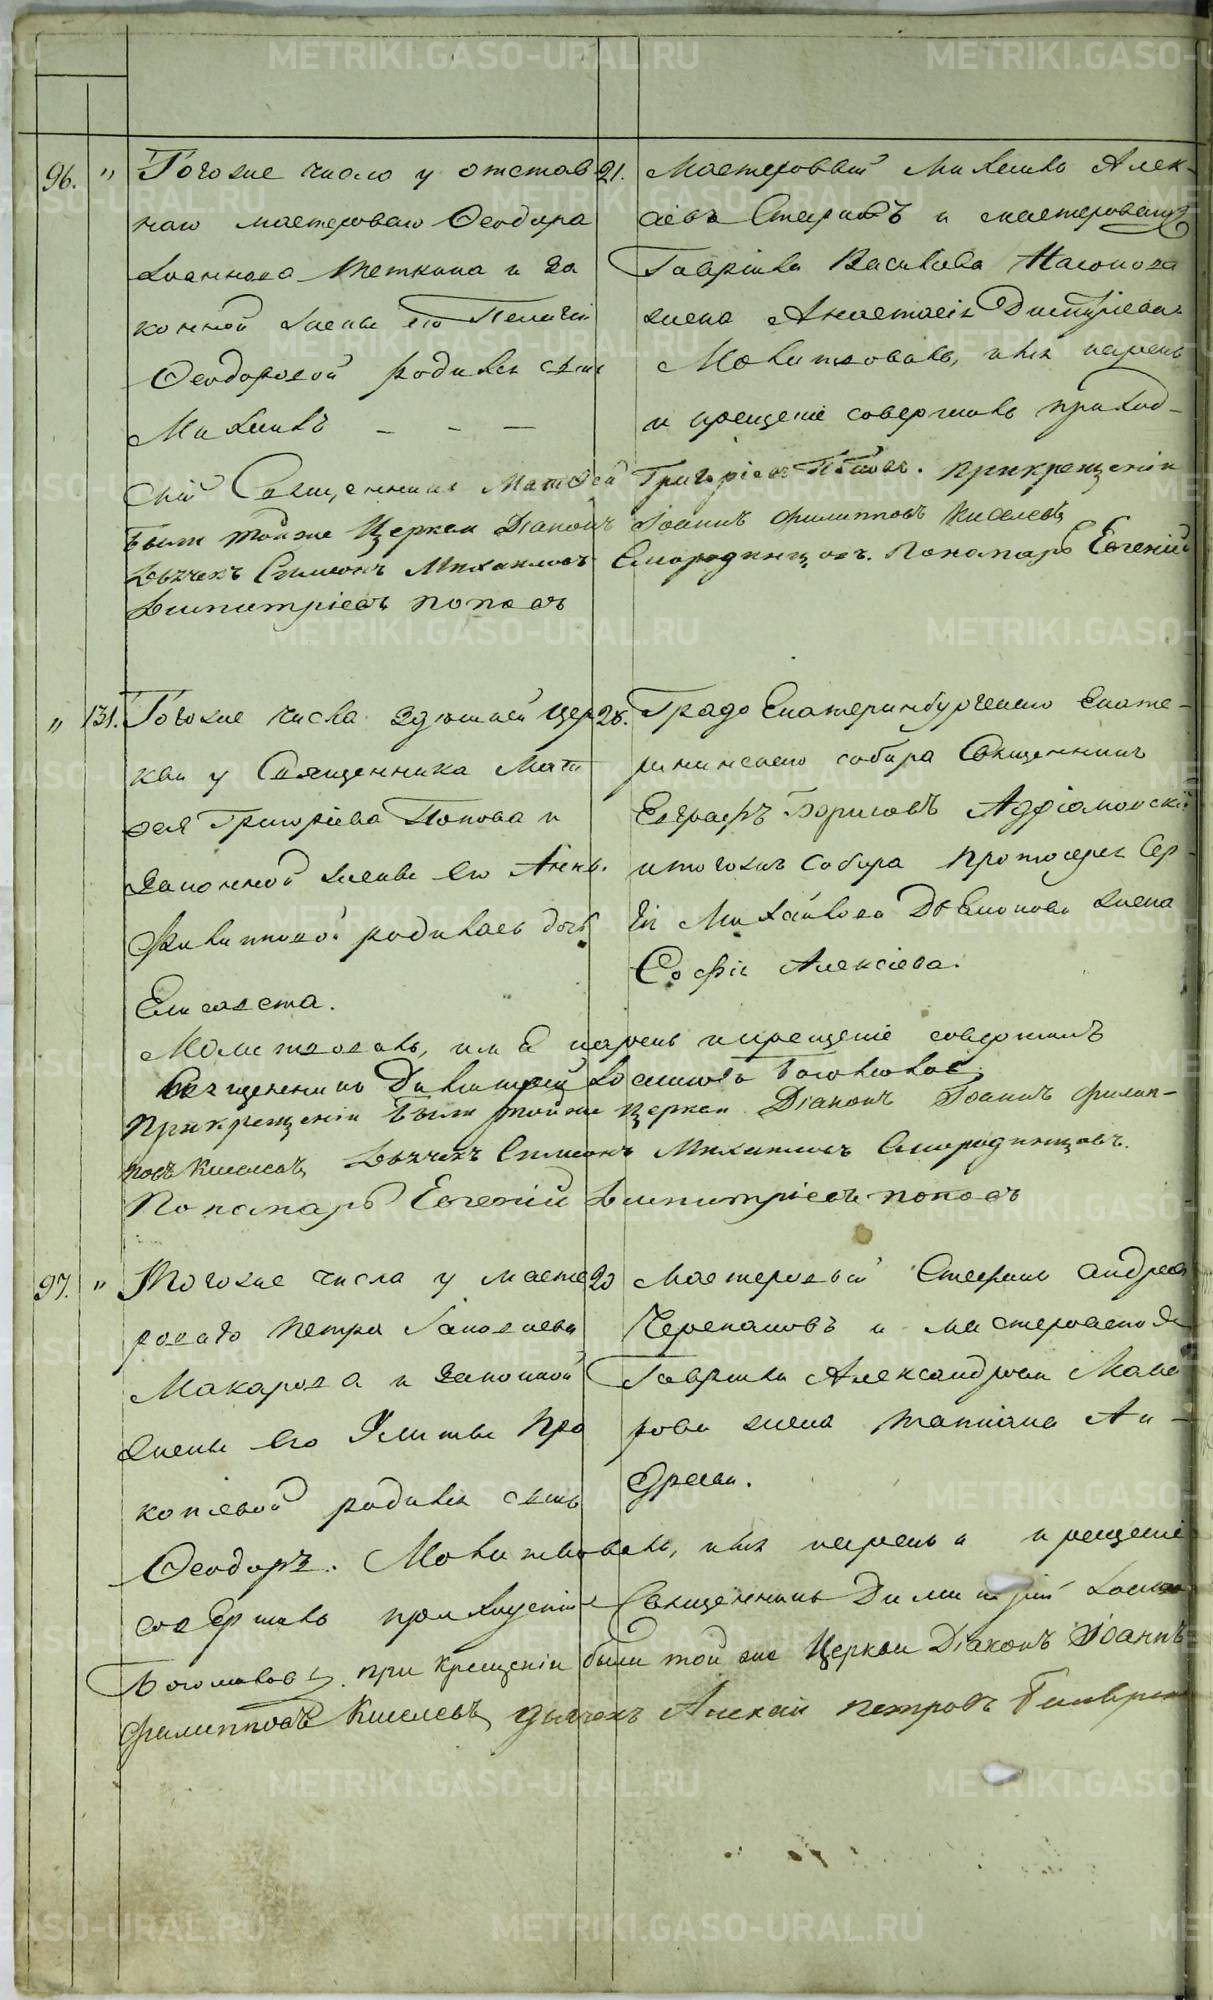 96. " Тогоже число у отстав
наго мастероваго Ѳеодора
Іоаннова Теткина и за
конной жены его Пелагіи
Ѳеодоровой родился сынъ
Михаилъ - - -
21. Мастеровый Михаилъ Алек-
сѣевъ и мастероваго
Гавріила Васильева
жена Анастасія Димитріева
Молитвовалъ, имя нарекъ
и крещеніе совершилъ приход-
скій Священникъ Матѳей Григоріевъ Поповъ. При крещеніи
были тойже Церкви Діаконъ Іоаннъ Филипповъ Киселевъ
Дьячекъ Симеонъ Михаиловъ Смородинцовъ. Пономарь Евгеній
Димитріевъ Поповъ
" 131. Тогоже числа здѣшней Цер
кви у Священника Мат
ѳея Григоріева Попова и
законной жены его Анны
Филипповой родилась дочь
Елисавета.
28. Градо Екатеринбургскаго Екате-
рининскаго собора Священникъ
Евграфъ Борисовъ Адріановскій
и тогожъ Собора Протоіерея Сер-
гія Михайлова жена
Софія Алексіева.
Молитвовалъ, имя нарекъ и крещеніе совершилъ
Священникъ Димитрій Іоанновъ Боголюбовъ
При крещеніи были тойже Церкви Діаконъ Іоаннъ Филип-
повъ Киселевъ Дьячекъ Симеонъ Михаиловъ Смородинцовъ.
Пономарь Евгеній Димитріевъ Поповъ
97. " Тогоже числа у масте
роваго Петра Іаковлева
Макарова и законной
жены его Улиты Про
копіевой родился сынъ
Ѳеодоръ.
20 Мастеровый Стефанъ Андреевъ
Черепановъ и мастероваго
Гавріила Александрова Мака
рова жена Татіана Ан-
дреева.
Молитвовалъ, имя нарекъ и крещеніе
совершилъ приходскій Священникъ Димитрій Іоанновъ
Боголюбовъ. при крещеніи были той же Церкви Діаконъ Іоаннъ
Филипповъ Киселевъ, дьячекъ Алексій Петровъ
METRIKI.GASO-URAL.RU